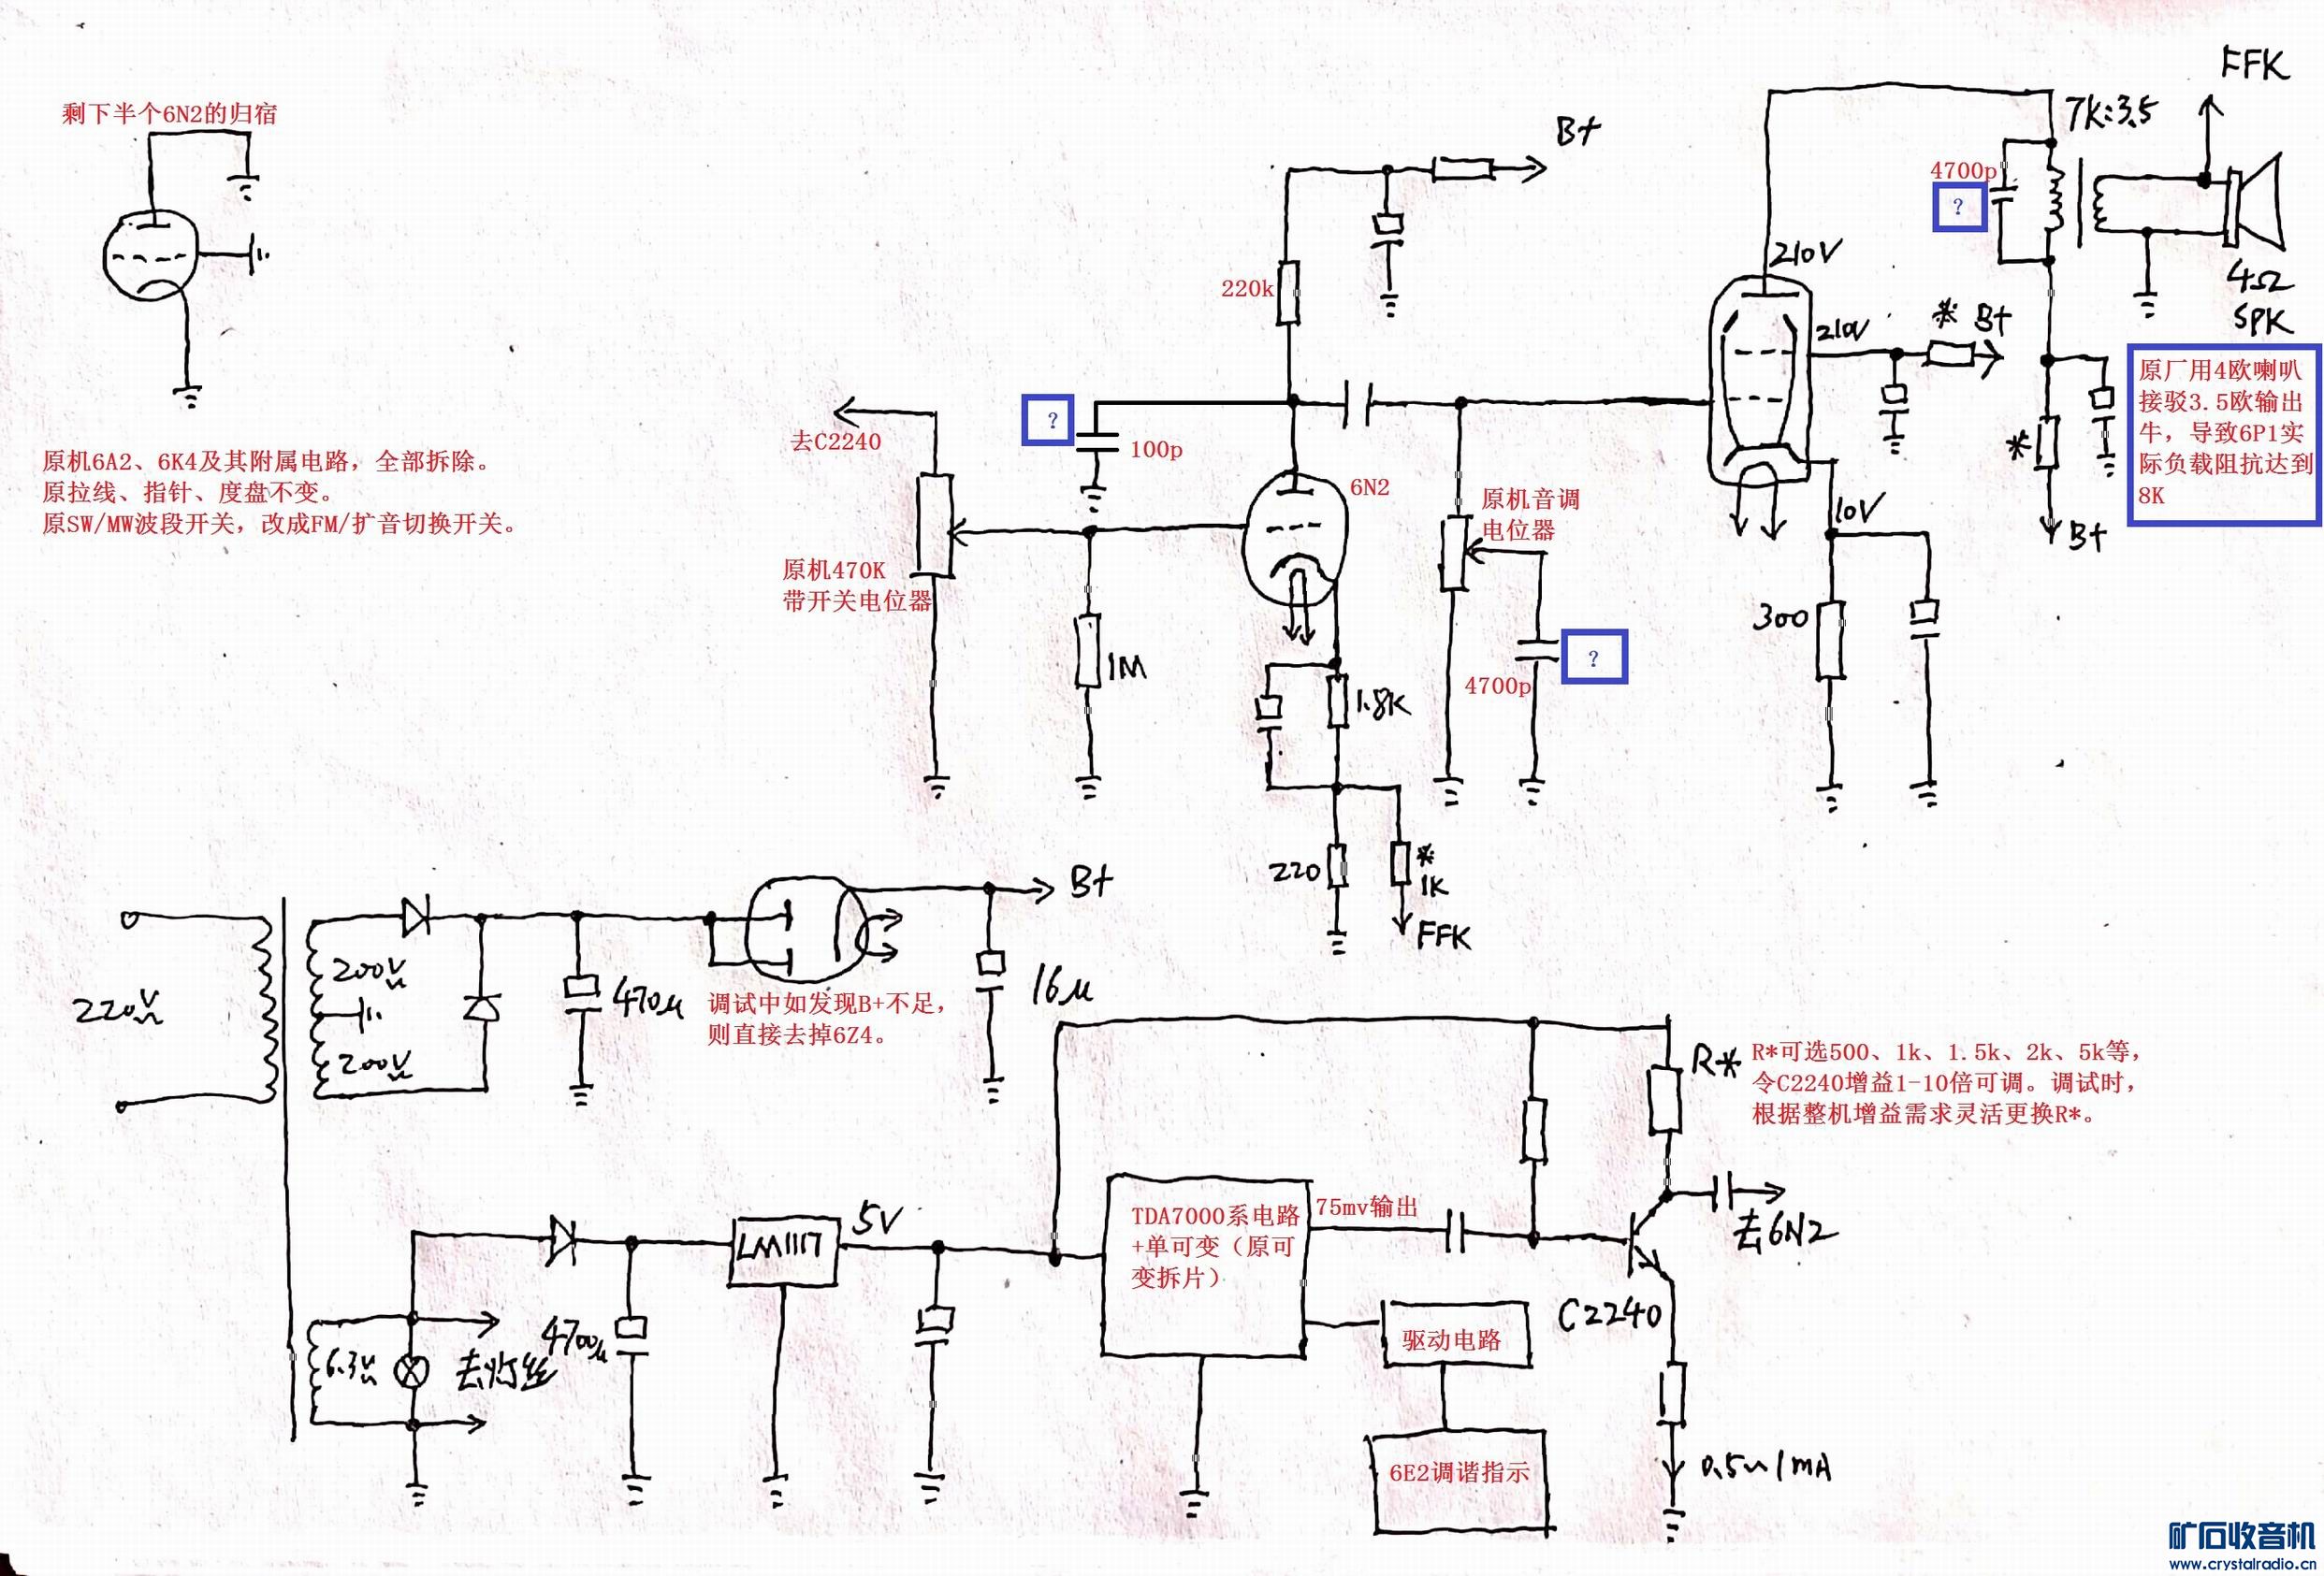 FFK
7K:3.5
剩下半个6N2的归宿
B+
4700p
?
220k
210V
210V
* B+
4Ω
SPK
原厂用4欧喇叭
接驳3.5欧输出
牛，导致6P1实
际负载阻抗达到
8K
*
B+
?
去C2240
100p
6N2
原机6A2、6K4及其附属电路，全部拆除。
原拉线、指针、度盘不变。
原SW/MW波段开关，改成FM/扩音切换开关。
原机音调
电位器
10V
原机470K
带开关电位器
300
1M
?
4700p
1.8K
220
*
1K
FFK
B+
220V
200V
200V
470μ
调试中如发现B+不足，
则直接去掉6Z4。
16μ
R*
R*可选500、1k、1.5k、2k、5k等，
令C2240增益1-10倍可调。调试时，
根据整机增益需求灵活更换R*。
LM1117
5V
TDA7000系电路
+单可变（原可
变拆片）
75mv输出
去6N2
C2240
6.3V
去灯丝
4700μ
驱动电路
6E2调谐指示
0.5~1mA
矿石收音机
www.crystalradio.cn